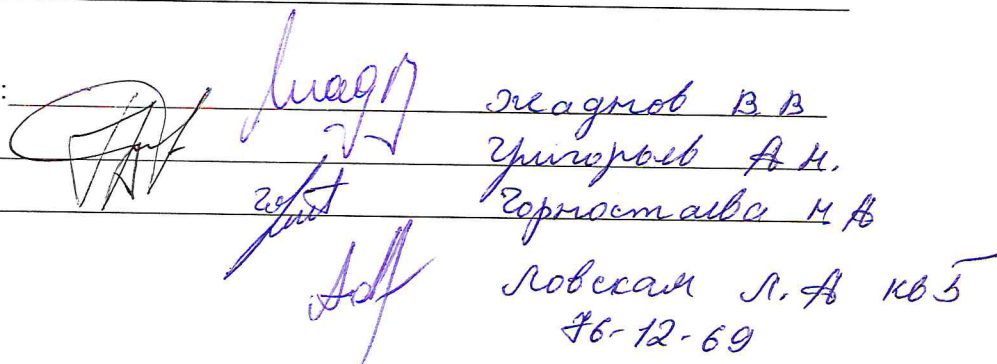 :
Жаднов В В
Григорьев А Н.
Горностаева Н А
Ловская Л. А кв 5
76-12-69